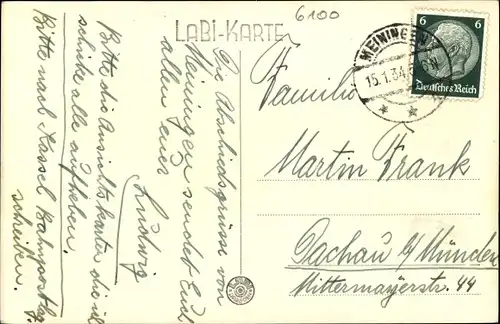 LABI-KARTE
6100
Die Abschiedsgrüsse von
Meiningen sendet Euch
allen euer
Ludwig
Bitte die Ansichtskarten die ich
schicke alle aufheben.
Bitte nach Kassel Bahnpostlag.
schreiben.
MEININGEN
15.1.34
6
Deutsches Reich
Familie
Martin Frank
Dachau b/ München
Mittermayerstr. 44